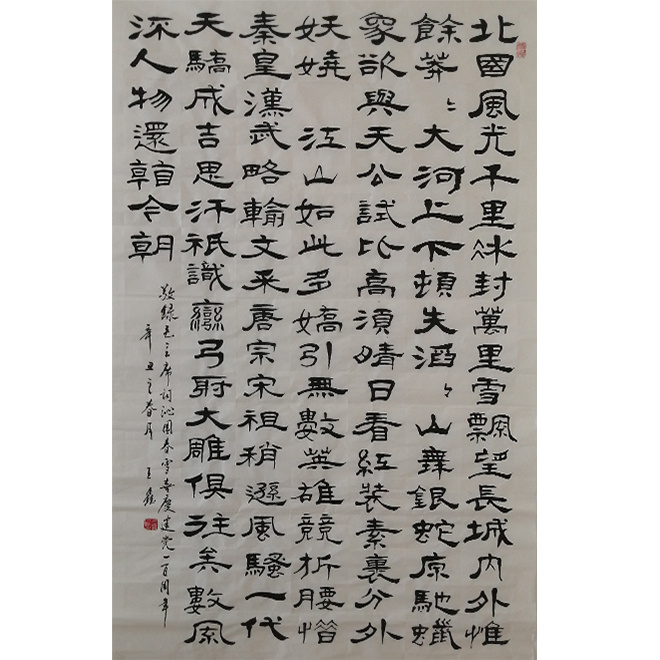 北國風光千里冰封萬里雪飄望長城內外惟
餘莽〻大河上下頓失滔〻山舞銀蛇原馳蠟
象欲與天公試比高須晴日看紅裝素裹分外
妖嬈 江山如此多嬌引無數英雄競折腰惜
秦皇漢武略輸文采唐宗宋祖稍遜風騷一代
天驕成吉思汗祇識彎弓射大雕俱往矣數風
流人物還看今朝
敬録毛主席词沁園春雪喜慶建党一百周年
辛丑之春月 王